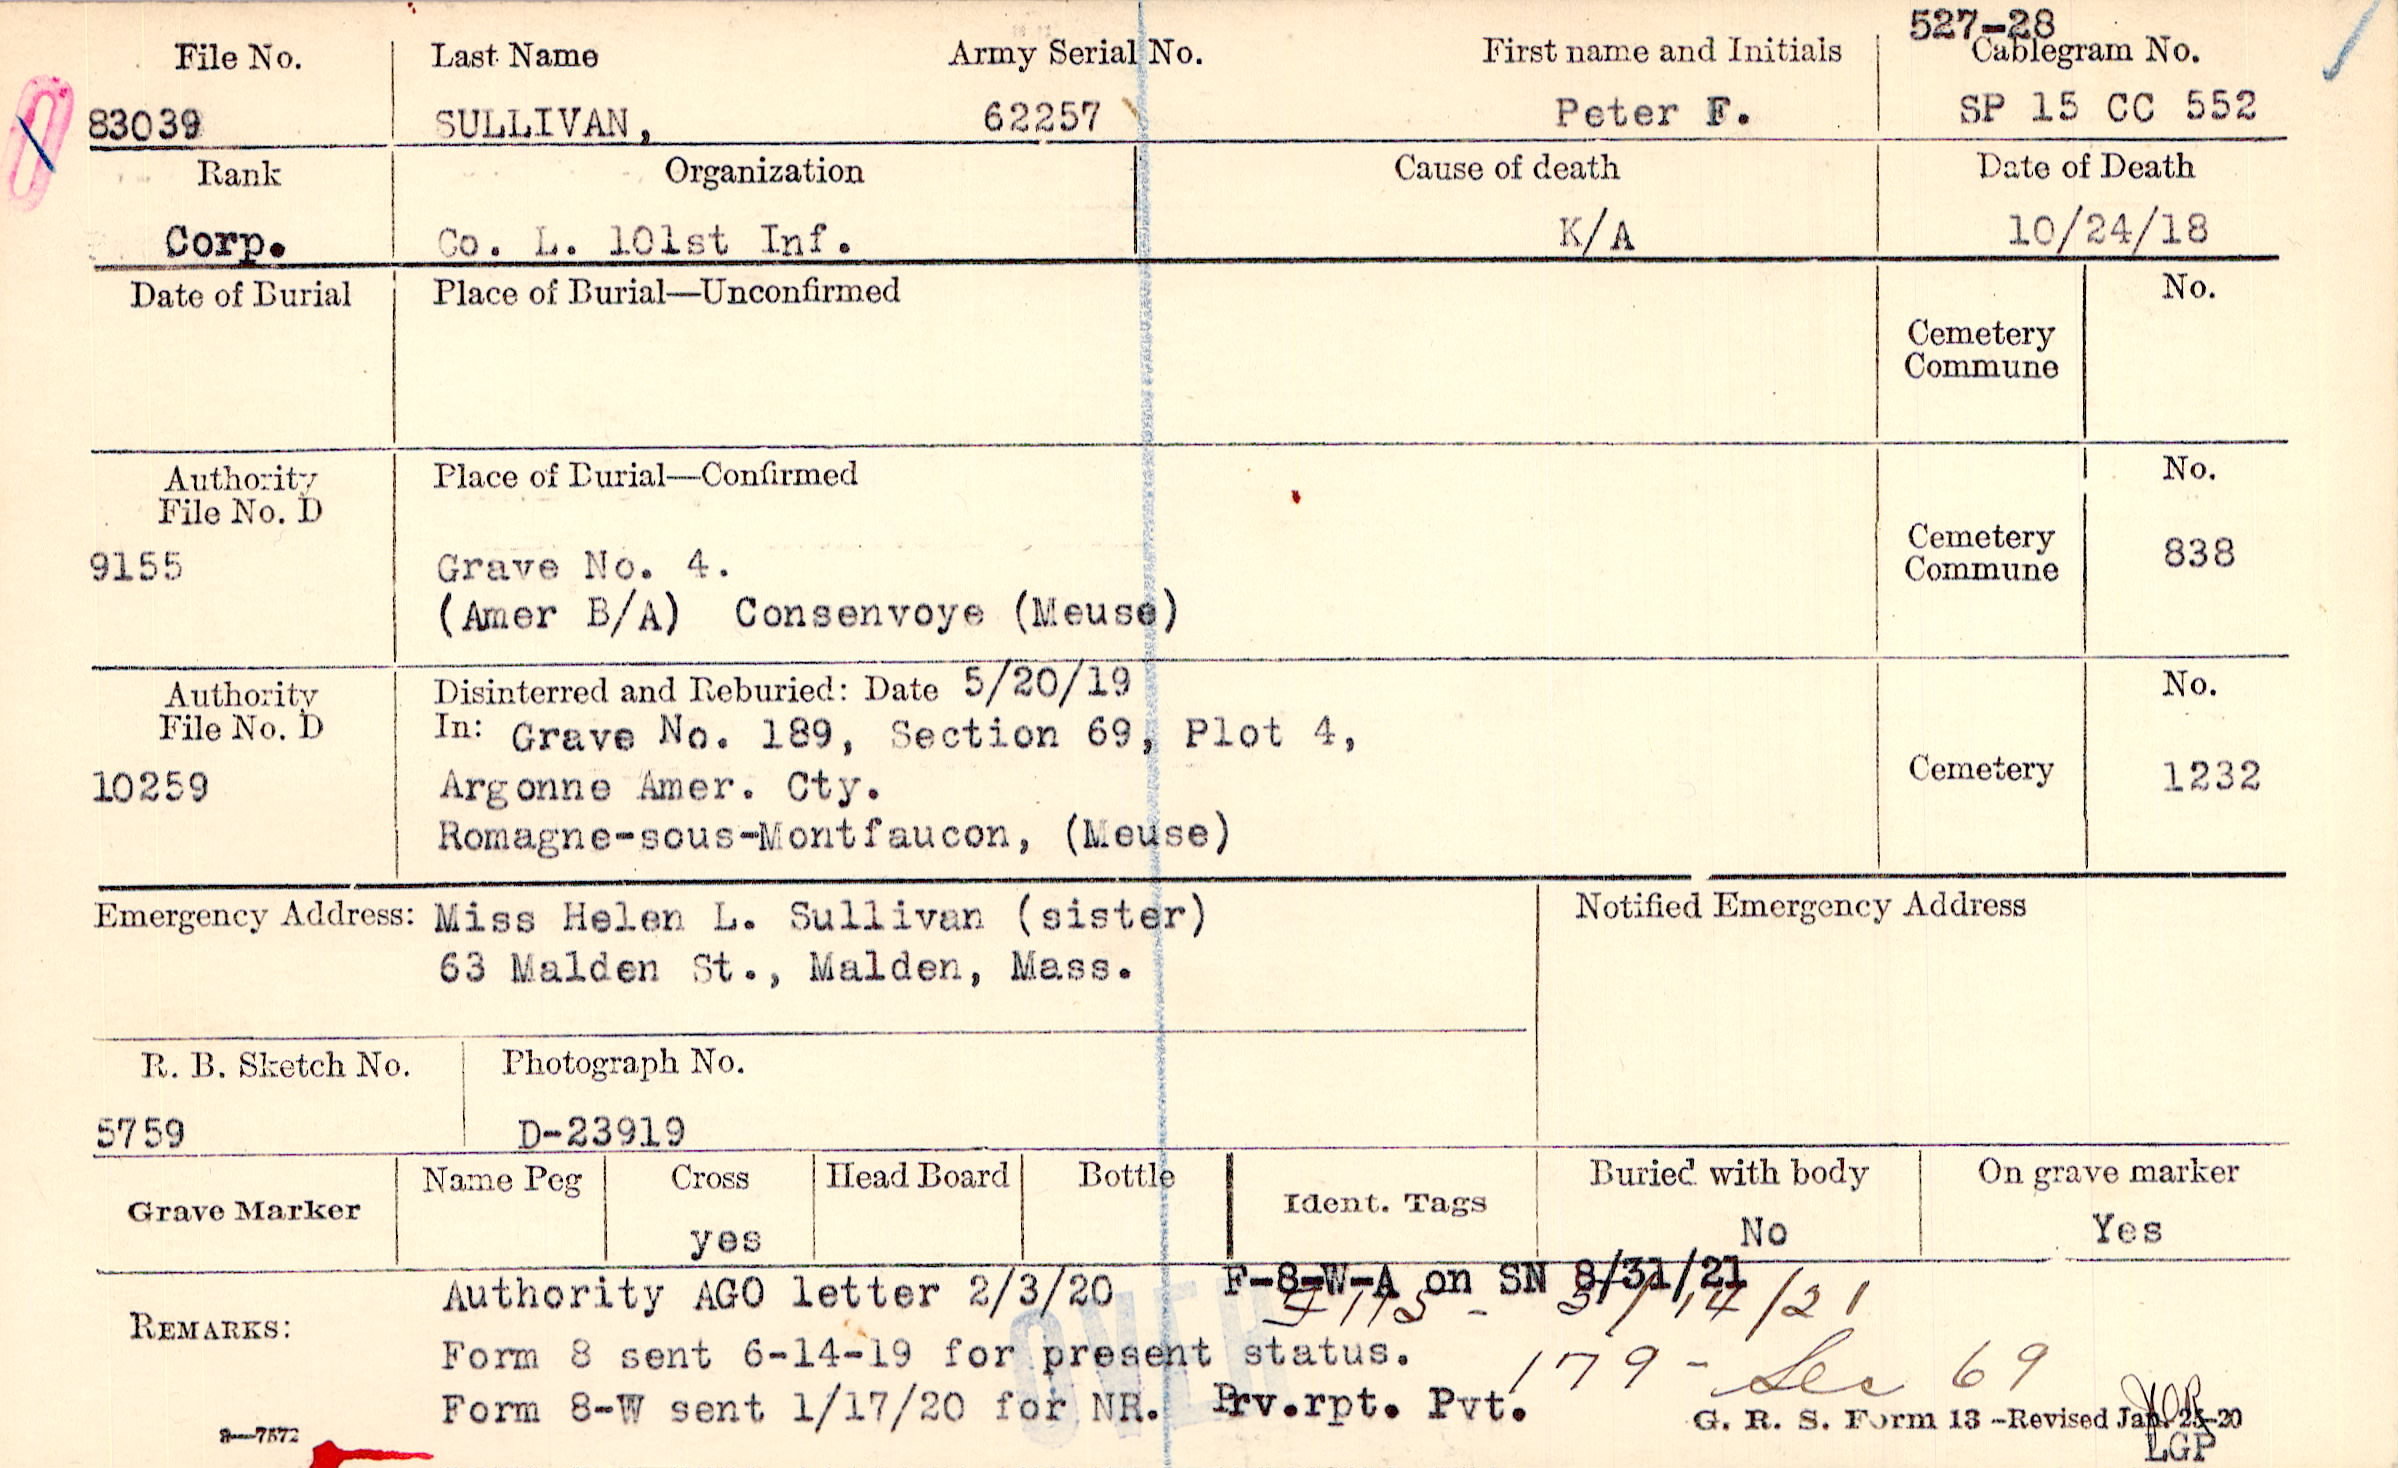 527-28
File No. Last Name Army Serial No. First name and Initials Cablegram No.
83039 SULLIVAN, 62257 Peter F. SP 15 CC 552
Rank Organization Cause of death Date of Death
Corp. Co. L. 101st Inf. K/A 10/24/18
Date of Burial Place of Burial—Unconfirmed No.
Cemetery
Commune
Authority Place of Burial—Confirmed No.
File No. D
9155 Grave No. 4. Cemetery
Commune 838
(Amer B/A) Consenvoye (Meuse)
Authority Disinterred and Reburied: Date 5/20/19 No.
File No. D In: Grave No. 189, Section 69, Plot 4,
10259 Argonne Amer. Cty. Cemetery 1232
Romagne-sous-Montfaucon, (Meuse)
Emergency Address: Miss Helen L. Sullivan (sister) Notified Emergency Address
63 Malden St., Malden, Mass.
R. B. Sketch No. Photograph No.
5759 D-23919
Grave Marker Name Peg Cross Head Board Bottle Ident. Tags Buried with body On grave marker
yes No Yes
Authority AGO letter 2/3/20 F-8-W-A on SN 8/31/21
REMARKS: 14/21
Form 8 sent 6-14-19 for present status. 179 - Sec 69
Form 8-W sent 1/17/20 for NR. Prv.rpt. Pvt.
OVER
G. R. S. Form 13 -Revised Jan. 25-20
3—7572 LGP